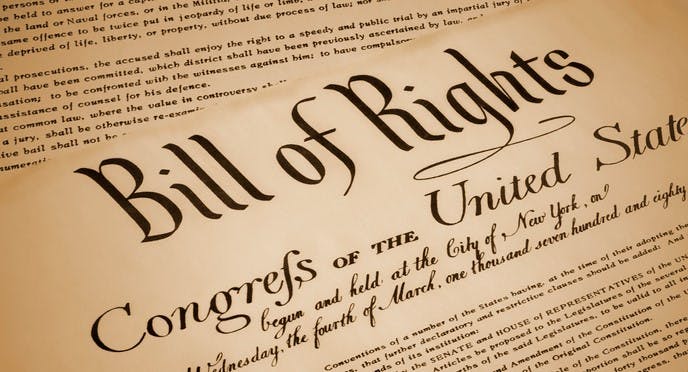 persons or
be held to answer for a capital
the land or Naval forces, or in the Militia
same offence to be twice put in jeopardy of life or limb,
deprived of life, liberty, or property, without due process of law; nor
prosecutions, the accused shall enjoy the right to a speedy and public trial by an impartial jury of
shall have been committed, which district shall have been previously ascertained by law, and
to be confronted with the witnesses against him; to have compulsory
assistance of counsel for his defence.
at common law, where the value in controversy shall
a jury, shall be otherwise re-exam
bail shall not be
Bill of Rights
Congreſs OF THE United State
begun and held at the City of New York, on
Wednesday, the fourth of March, one thousand seven hundred and eighty
Conventions of a number of the States having, at the time of their adopting the
that further declaratory and restrictive clauses should be added: And
of its institution:
the SENATE and HOUSE of REPRESENTATIVES of the UN
Articles be proposed to the Legislatures of the several
of the said Legislatures, to be valid to all in
and Amendment of the Constitution of the
of the Original Constitution.
of the Constitution, there
shall be so re